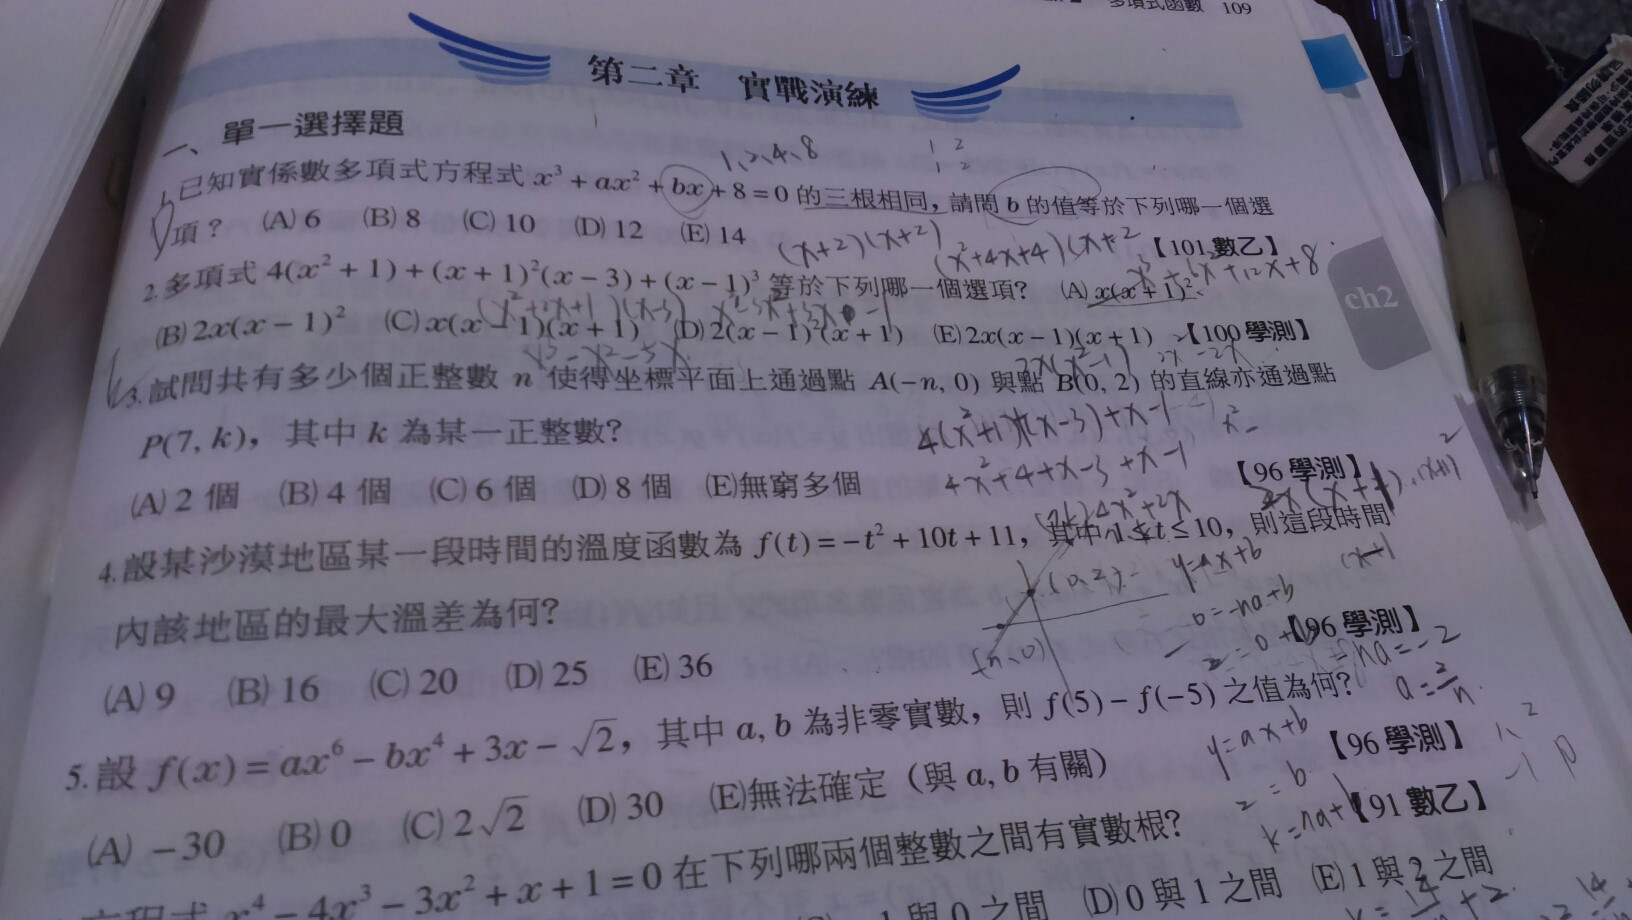 多項式函數 109
第二章 實戰演練
一、單一選擇題
1、2、4、8
1 2
1 2
1. 已知實係數多項式方程式 x³ + ax² + bx + 8 = 0 的三根相同，請問 b 的值等於下列哪一個選
項？ (A) 6 (B) 8 (C) 10 (D) 12 (E) 14
【101 數乙】
(x+2)(x+2)
(x²+4x+4)(x+2
x³+6x²+12x+8
2. 多項式 4(x² + 1) + (x + 1)²(x − 3) + (x − 1)³ 等於下列哪一個選項? (A) x(x + 1)²
(x²+2x+1)(x-3)
(B) 2x(x − 1)² (C) x(x − 1)(x + 1) (D) 2(x − 1)²(x + 1) (E) 2x(x − 1)(x + 1) 【100 學測】
2x(x²-1)
3. 試問共有多少個正整數 n 使得坐標平面上通過點 A(−n, 0) 與點 B(0, 2) 的直線亦通過點
P(7, k)，其中 k 為某一正整數?
(A) 2 個 (B) 4 個 (C) 6 個 (D) 8 個 (E)無窮多個
【96 學測】
4x²+4+x-3+x-1
4x²+2x
4. 設某沙漠地區某一段時間的溫度函數為 f(t) = −t² + 10t + 11，其中 1 ≤ t ≤ 10，則這段時間
內該地區的最大溫差為何?
【96 學測】
(A) 9 (B) 16 (C) 20 (D) 25 (E) 36
(0,2)
y=ax+b
0=-na+b
-na=-2
a=2/n
5. 設 f(x) = ax⁶ − bx⁴ + 3x − √2，其中 a, b 為非零實數，則 f(5) − f(−5) 之值為何?
【96 學測】
(A) −30 (B) 0 (C) 2√2 (D) 30 (E)無法確定（與 a, b 有關）
y=ax+b
2=b
方程式 x⁴ − 4x³ − 3x² + x + 1 = 0 在下列哪兩個整數之間有實數根?
【91 數乙】
−1 與 0 之間 (D) 0 與 1 之間 (E) 1 與 2 之間
ch2